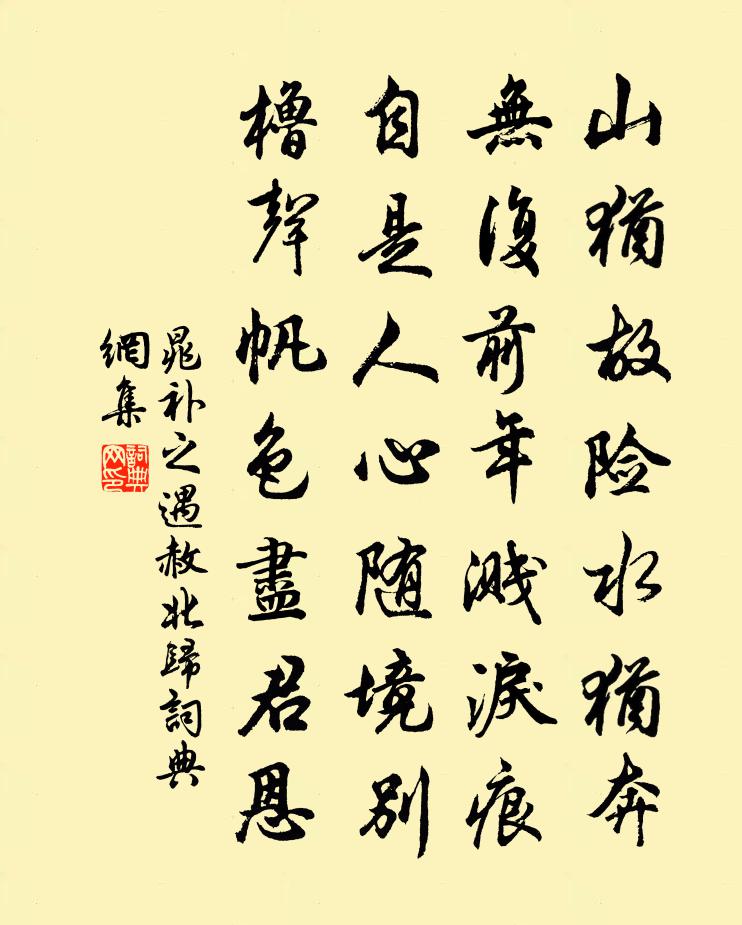 山猶故险水猶奔
無復前年溅淚痕
自是人心随境别
櫓聲帆色盡君恩
晁补之遇赦北歸詞典
網集
詞典
网印